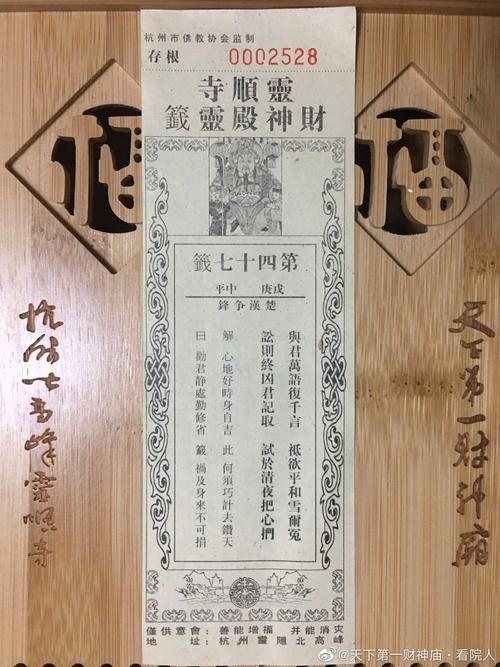 杭州市佛教协会监制
存根 0002528
靈順寺
財神殿靈籤
第四十七籤
戊庚 中平
楚漢争鋒
與君萬語復千言 祗欲平和雪爾冤
訟則終凶君記取 試於清夜把心捫
解 心地好時身自吉 此 何須巧計去鑽天
曰 勸君静處勤修省 籤 禍及身來不可捐
僅供意會：善能增福并能消灾
地址：杭州靈隱北高峰
福
福
天下第一财神廟
杭州北高峰靈順寺
@天下第一财神庙·看院人